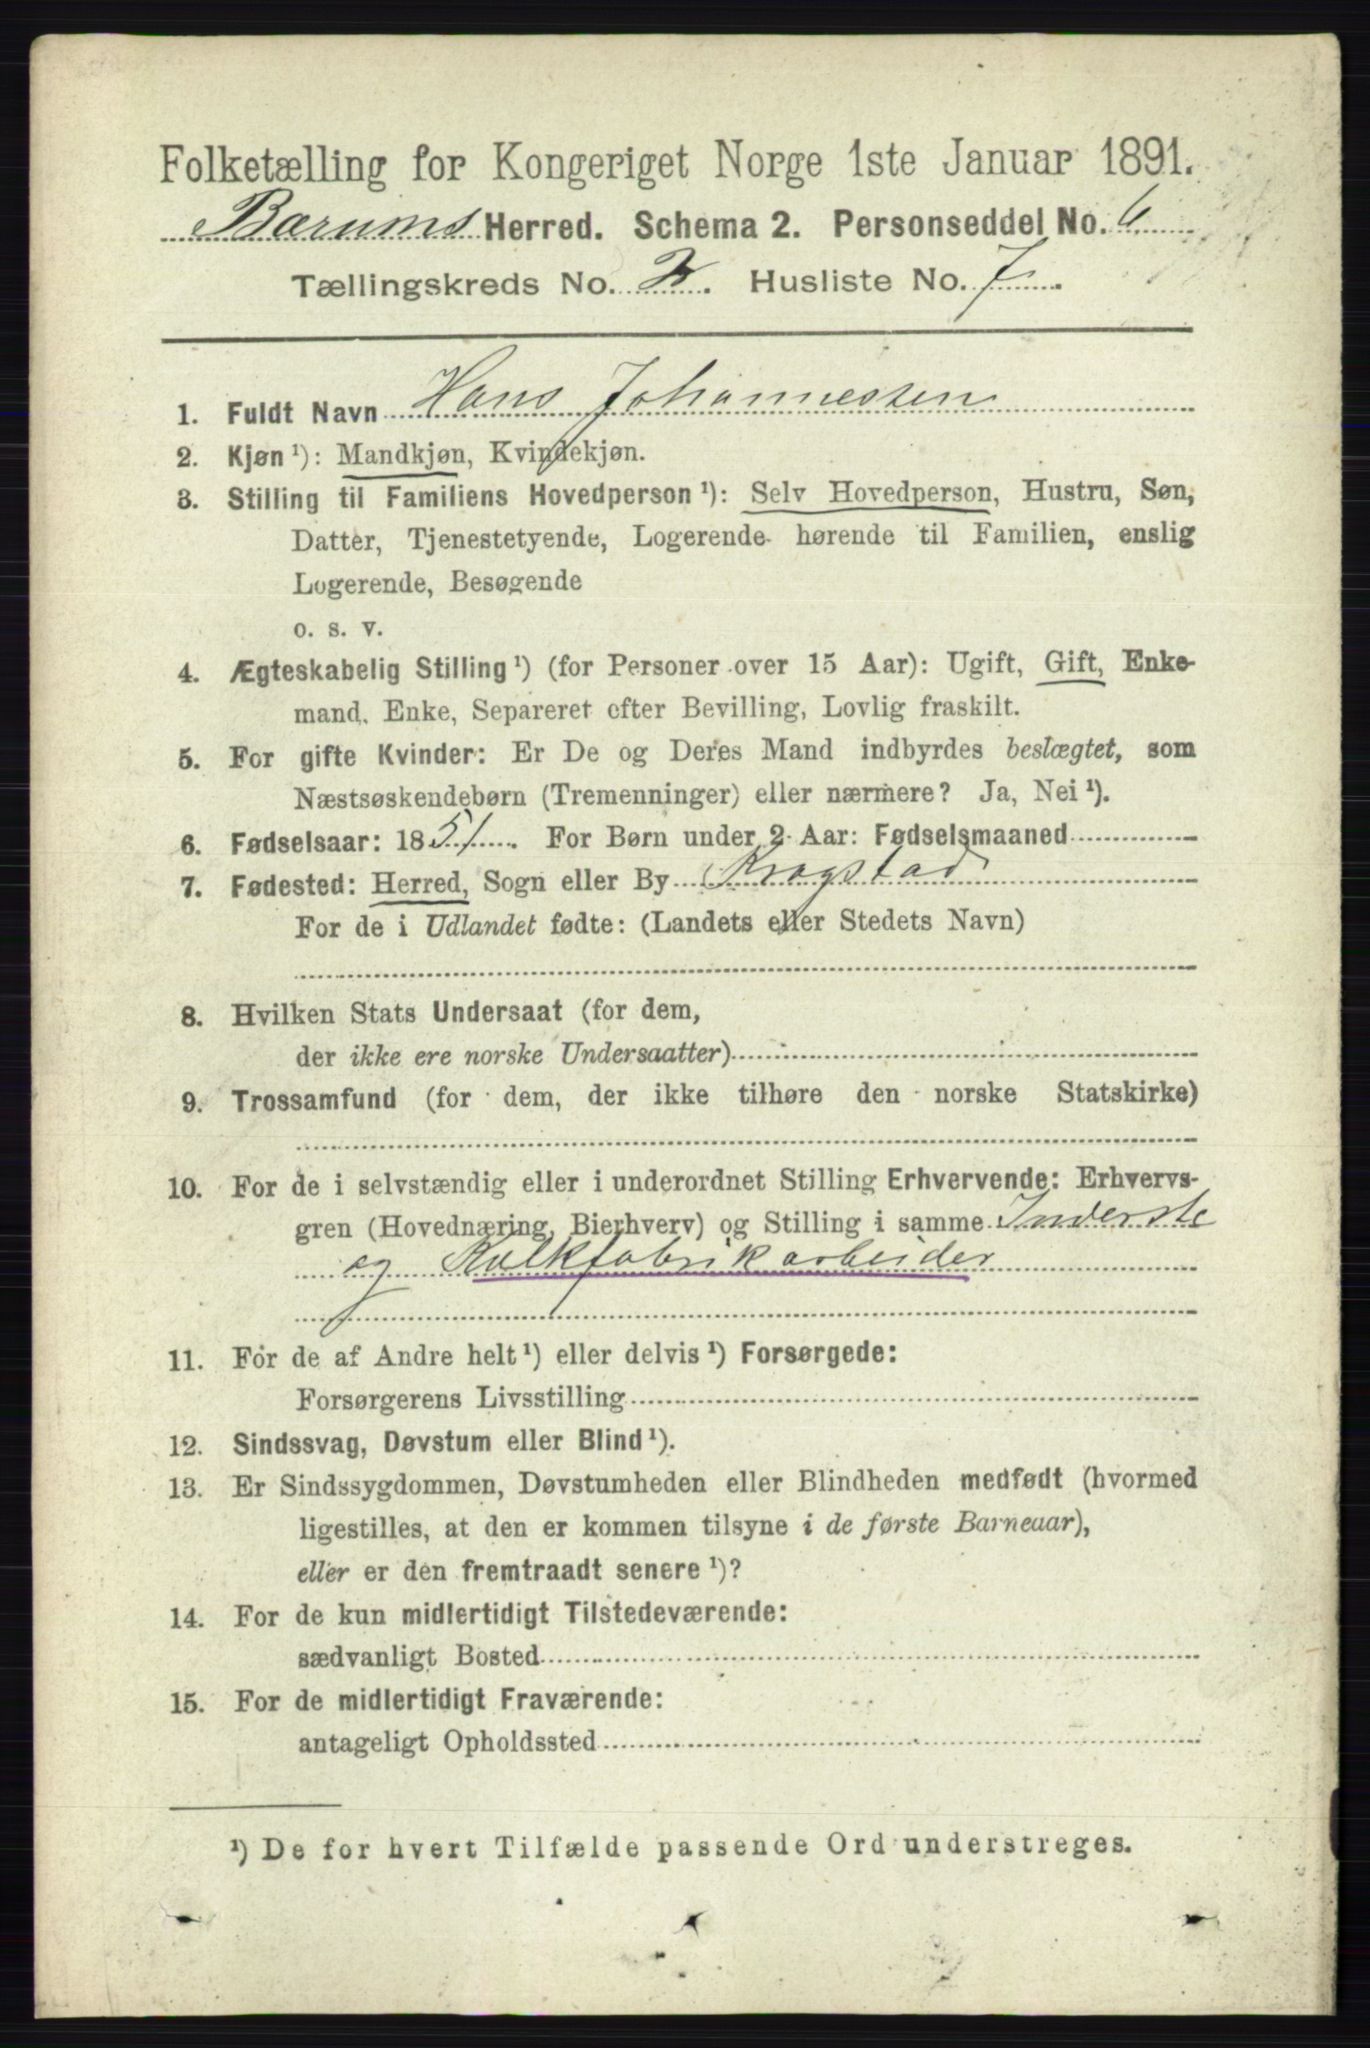 Folketælling for Kongeriget Norge 1ste Januar 1891.
Bærums Herred. Schema 2. Personseddel No. 6
Tællingskreds No. 2. Husliste No. 7.
1. Fuldt Navn Hans Johannessen
2. Kjøn¹): Mandkjøn, Kvindekjøn.
3. Stilling til Familiens Hovedperson¹): Selv Hovedperson, Hustru, Søn,
Datter, Tjenestetyende, Logerende hørende til Familien, enslig
Logerende, Besøgende
o. s. v.
4. Ægteskabelig Stilling¹) (for Personer over 15 Aar): Ugift, Gift, Enke-
mand, Enke, Separeret efter Bevilling, Lovlig fraskilt.
5. For gifte Kvinder: Er De og Deres Mand indbyrdes beslægtet, som
Næstsøskendebørn (Tremenninger) eller nærmere? Ja, Nei¹).
6. Fødselsaar: 1851. For Børn under 2 Aar: Fødselsmaaned
7. Fødested: Herred, Sogn eller By Krogstad
For de i Udlandet fødte: (Landets eller Stedets Navn)
8. Hvilken Stats Undersaat (for dem,
der ikke ere norske Undersaatter)
9. Trossamfund (for dem, der ikke tilhøre den norske Statskirke)
10. For de i selvstændig eller i underordnet Stilling Erhvervende: Erhvervs-
gren (Hovednæring, Bierhverv) og Stilling i samme Inderste
og Kalkfabrikarbeider
11. For de af Andre helt¹) eller delvis¹) Forsørgede:
Forsørgerens Livsstilling
12. Sindssvag, Døvstum eller Blind¹).
13. Er Sindssygdommen, Døvstumheden eller Blindheden medfødt (hvormed
ligestilles, at den er kommen tilsyne i de første Barneaar),
eller er den fremtraadt senere¹)?
14. For de kun midlertidigt Tilstedeværende:
sædvanligt Bosted
15. For de midlertidigt Fraværende:
antageligt Opholdssted
¹) De for hvert Tilfælde passende Ord understreges.